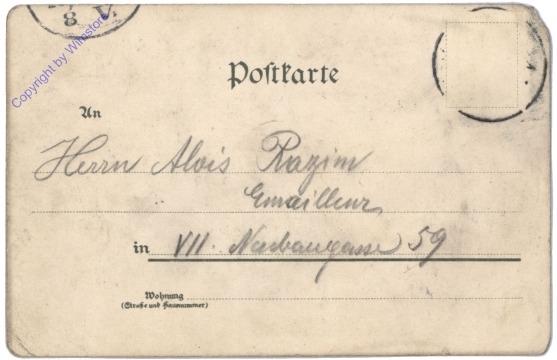 8 V.
Copyright by Wimstore
Postkarte
An
Herrn Alois Razim
Emailleur
in VII. Neubaugasse 59
Wohnung
(Straße und Hausnummer)